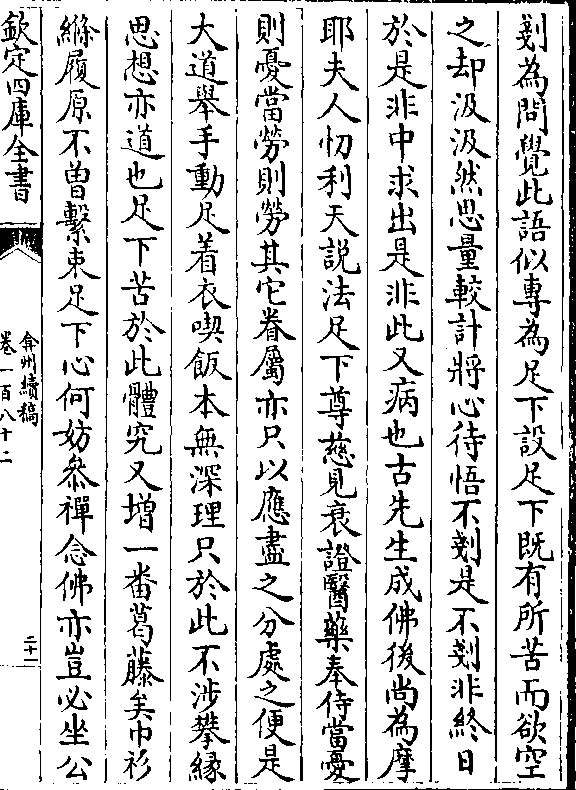 剗為問覺此語似專為足下設足下既有所苦而欲空
之却汲汲然思量較計將心待悟不剗是不剗非終日
於是非中求出是非此又病也古先生成佛後尚為摩
耶夫人忉利天説法足下尊慈見衰證醫藥奉侍當憂
則憂當勞則勞其它眷屬亦只以應盡之分處之便是
大道舉手動足着衣喫飯本無深理只於此不涉攀縁
思想亦道也足下苦於此體究又增一畨葛藤矣巾衫
縧履原不曽繫束足下心何妨叅禪念佛亦豈必坐公
欽定四庫全書
弇州續稿
卷一百八十二
二十一